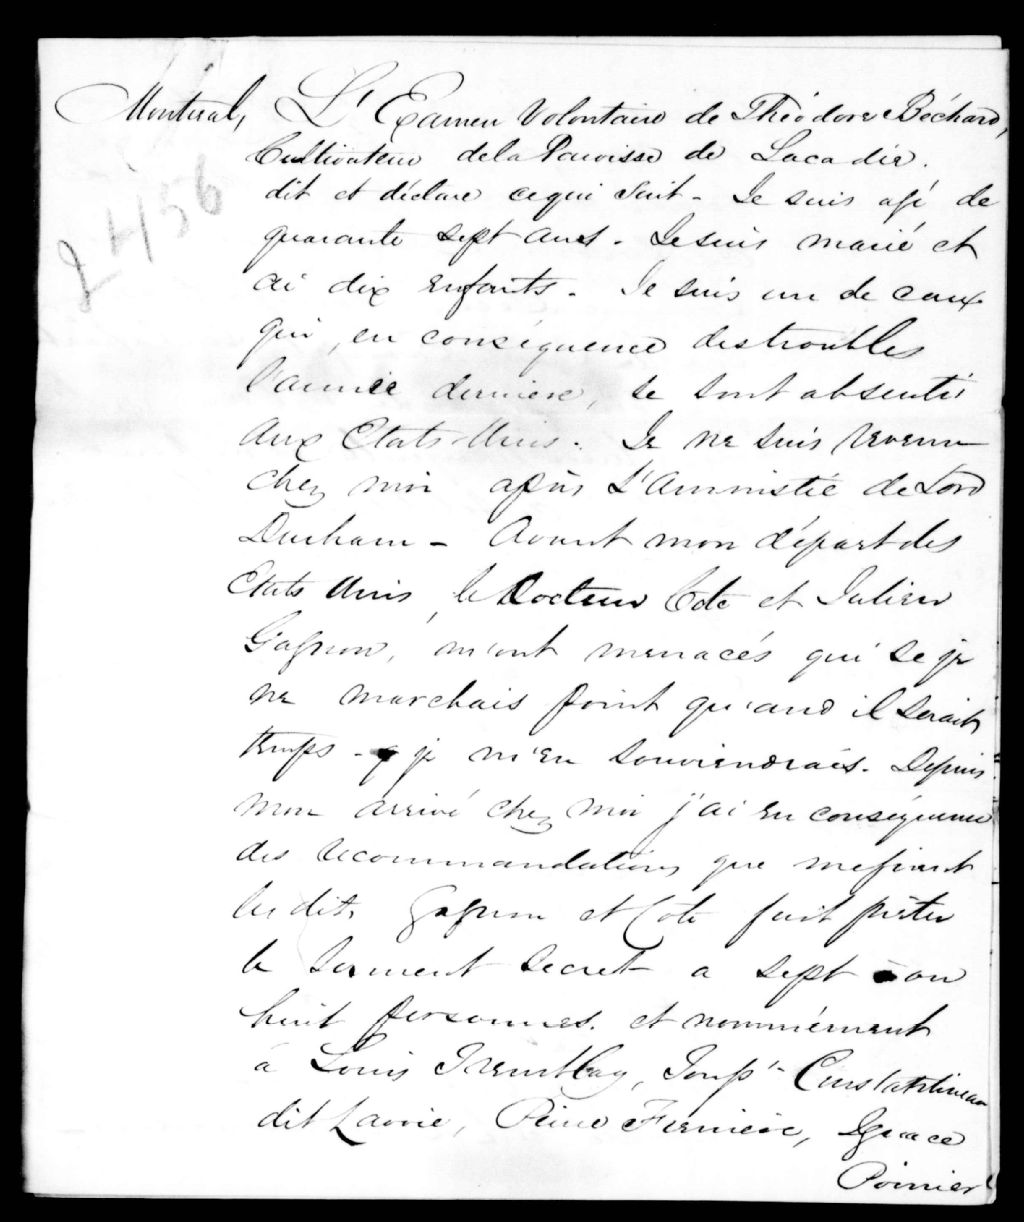 Montreal, L'Examen Volontaire de Théodore Béchard,
Cultivateur de la Paroisse de Lacadie.
dit et déclare ce qui suit - Je suis agé de
quarante sept ans. Je suis marié et
ai dix enfants. Je suis un de ceux
qui, en conséquence des troubles
l'année dernière, se sont absentés
aux Etats Unis. Je ne suis revenu
chez moi après L'Amnistie de Lord
Durham - Avant mon départ des
Etats Unis, le Docteur Cote et Julien
Gagnon, m'ont menacés qui se je
ne marchais point quand il serait
temps - q je m'en souviendrais. Depuis
mon arrivé chez moi j'ai en conséquence
des recommandations que me firent
les dits Gagnon et Cote fait prêter
le serment secret a sept ou
huit personnes. et nommément
à Louis Tremblay, Josph Constantineau
dit Lavoie, Pierre Fernière, Ignace
Poirier
2456